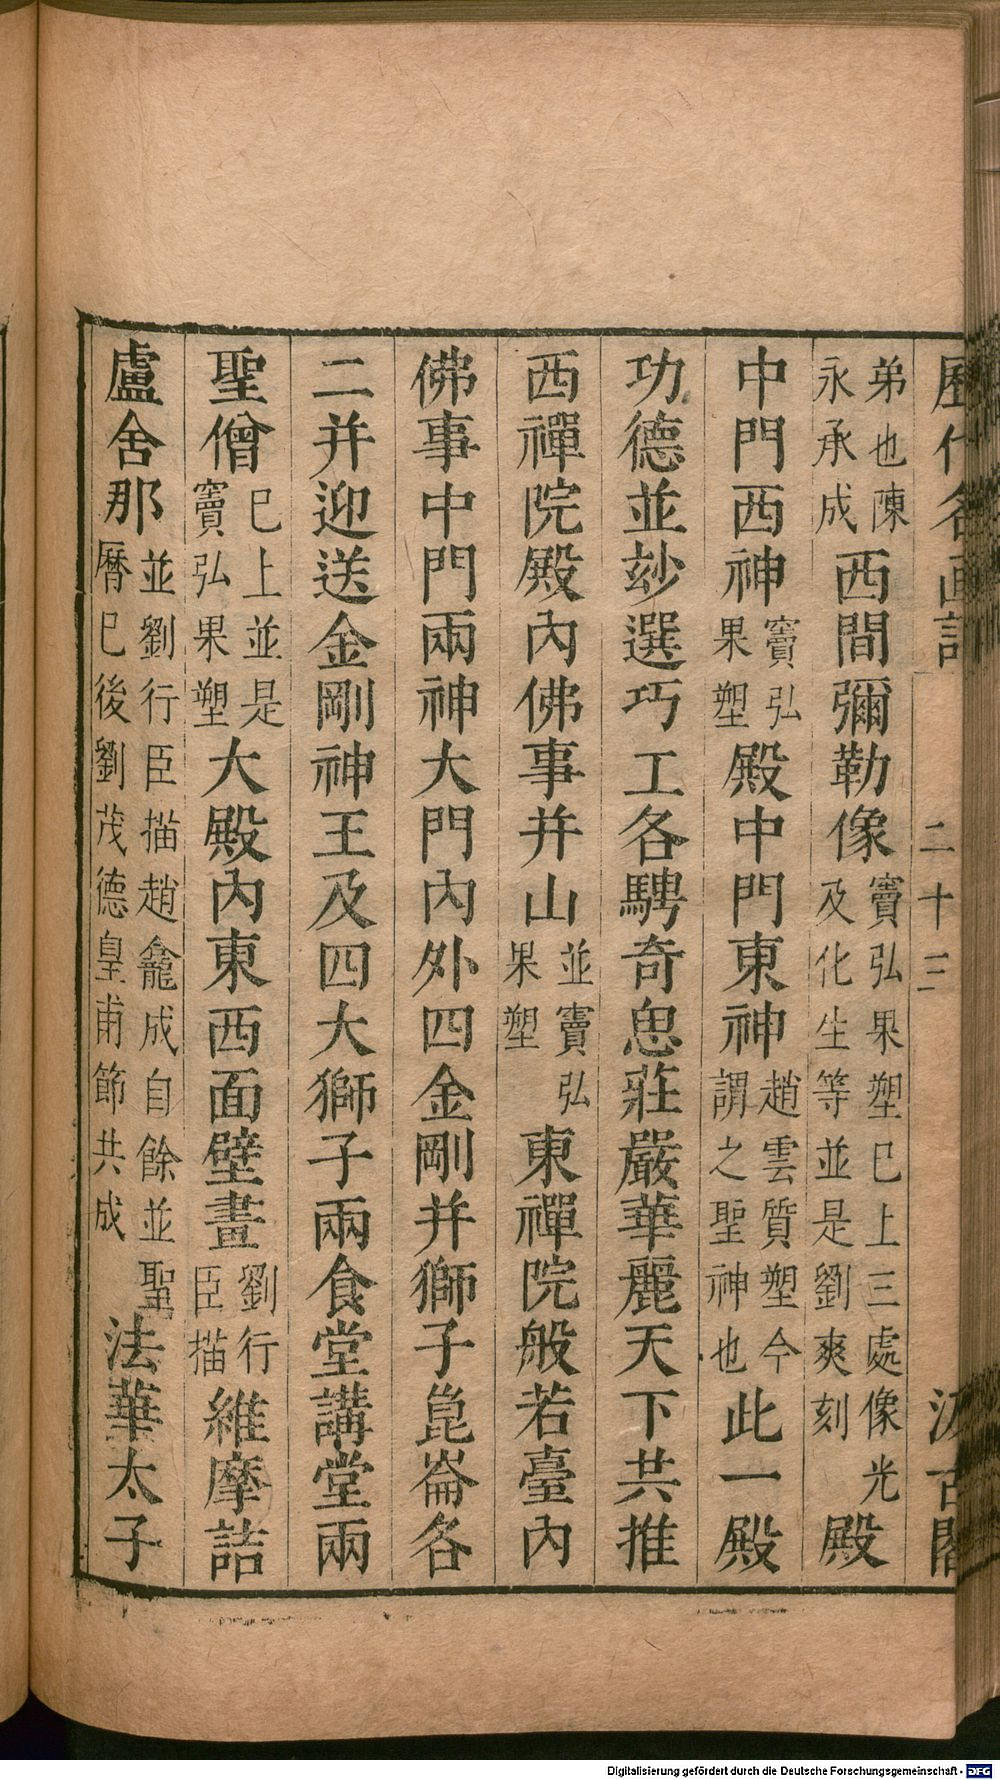 歷代名画記 二十三 汲古閣
弟也陳永承成西間彌勒像竇弘果塑巳上三處像光及化生等並是劉爽刻殿
中門西神竇弘果塑殿中門東神趙雲質塑今謂之聖神也此一殿
功德並玅選巧工各騁奇思莊嚴華麗天下共推
西禪院殿內佛事并山並竇弘果塑東禪院般若臺內
佛事中門兩神大門內外四金剛并獅子崑崙各
二并迎送金剛神王及四大獅子兩食堂講堂兩
聖僧巳上並是竇弘果塑大殿內東西面壁畫劉行臣描維摩詰
盧舍那並劉行臣描趙龕成自餘並聖曆巳後劉茂德皇甫節共成法華太子
Digitalisierung gefördert durch die Deutsche Forschungsgemeinschaft - DFG